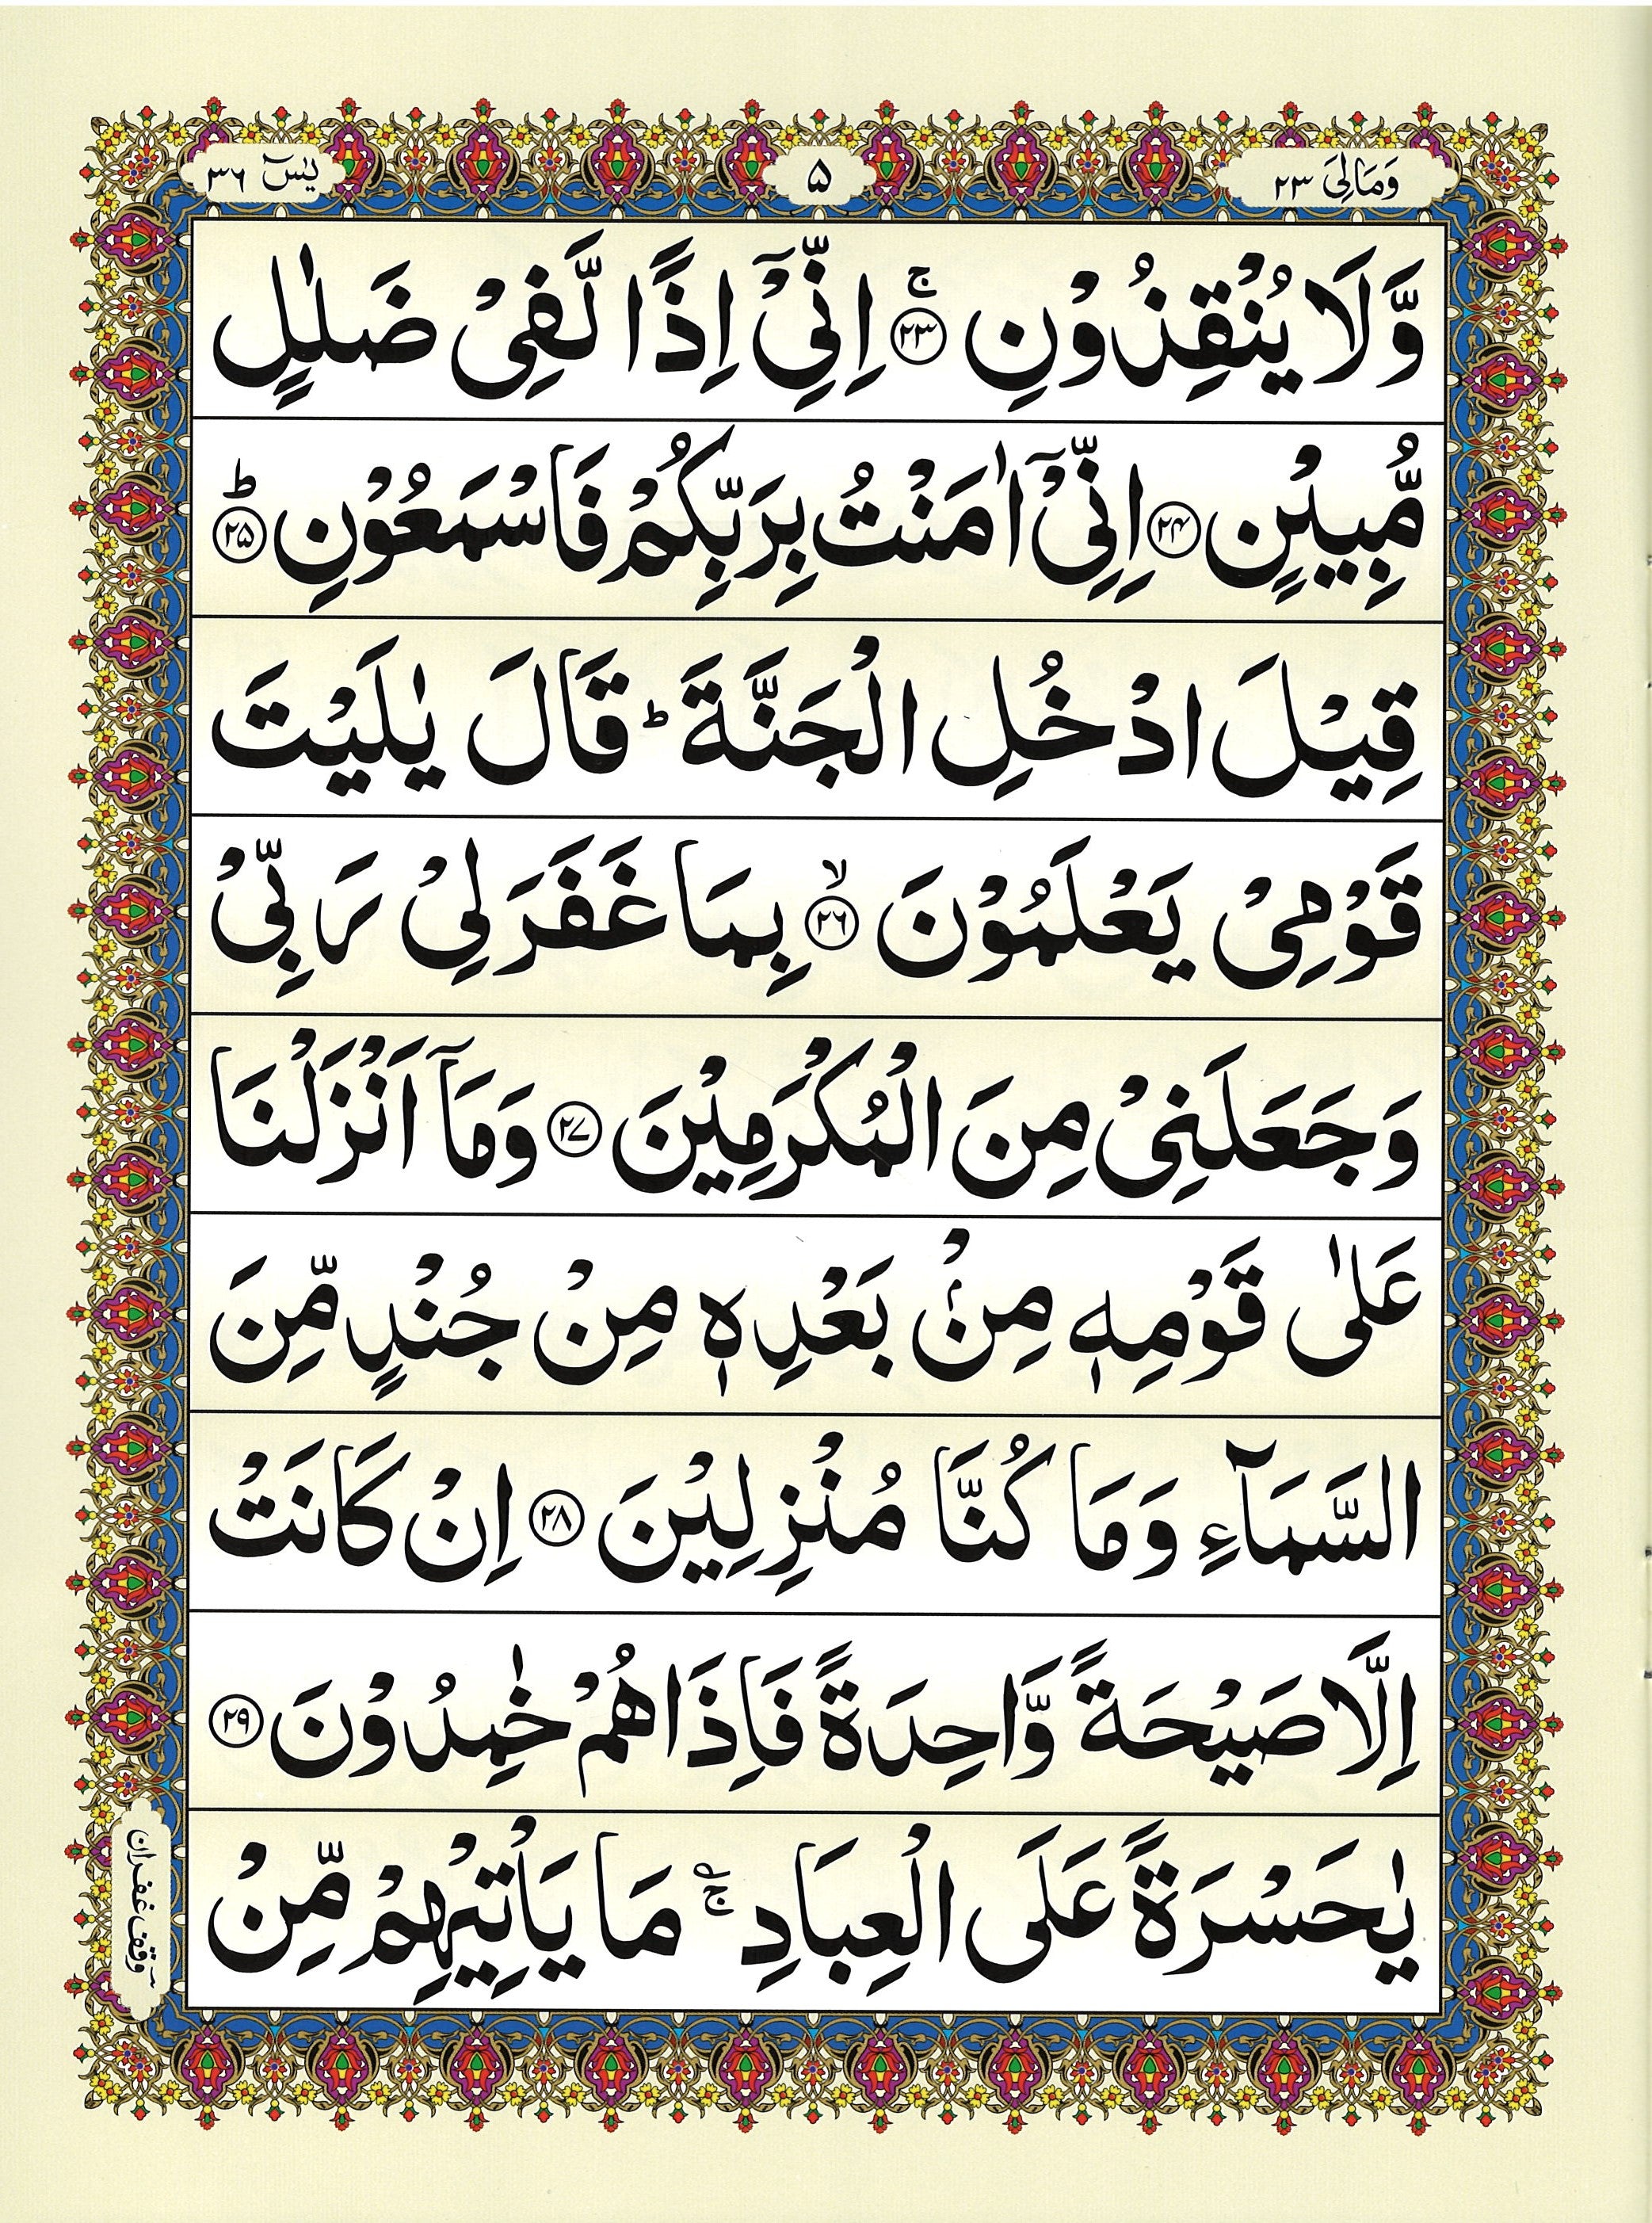 وَمَالِیَ ۲۳
۵
یٰسٓ ۳۶
وَّلَا یُنْقِذُوْنِ ۚ﴿۲۳﴾ اِنِّیْۤ اِذًا لَّفِیْ ضَلٰلٍ
مُّبِیْنٍ ﴿۲۴﴾ اِنِّیْۤ اٰمَنْتُ بِرَبِّكُمْ فَاسْمَعُوْنِ ؕ﴿۲۵﴾
قِیْلَ ادْخُلِ الْجَنَّةَ ؕ قَالَ یٰلَیْتَ
قَوْمِیْ یَعْلَمُوْنَ ۙ﴿۲۶﴾ بِمَا غَفَرَ لِیْ رَبِّیْ
وَجَعَلَنِیْ مِنَ الْمُكْرَمِیْنَ ﴿۲۷﴾ وَمَاۤ اَنْزَلْنَا
عَلٰی قَوْمِهٖ مِنْۢ بَعْدِهٖ مِنْ جُنْدٍ مِّنَ
السَّمَآءِ وَمَا كُنَّا مُنْزِلِیْنَ ﴿۲۸﴾ اِنْ كَانَتْ
اِلَّا صَیْحَةً وَّاحِدَةً فَاِذَا هُمْ خٰمِدُوْنَ ﴿۲۹﴾
یٰحَسْرَةً عَلَی الْعِبَادِ ۚؗ مَا یَاْتِیْهِمْ مِّنْ
وقف غفران